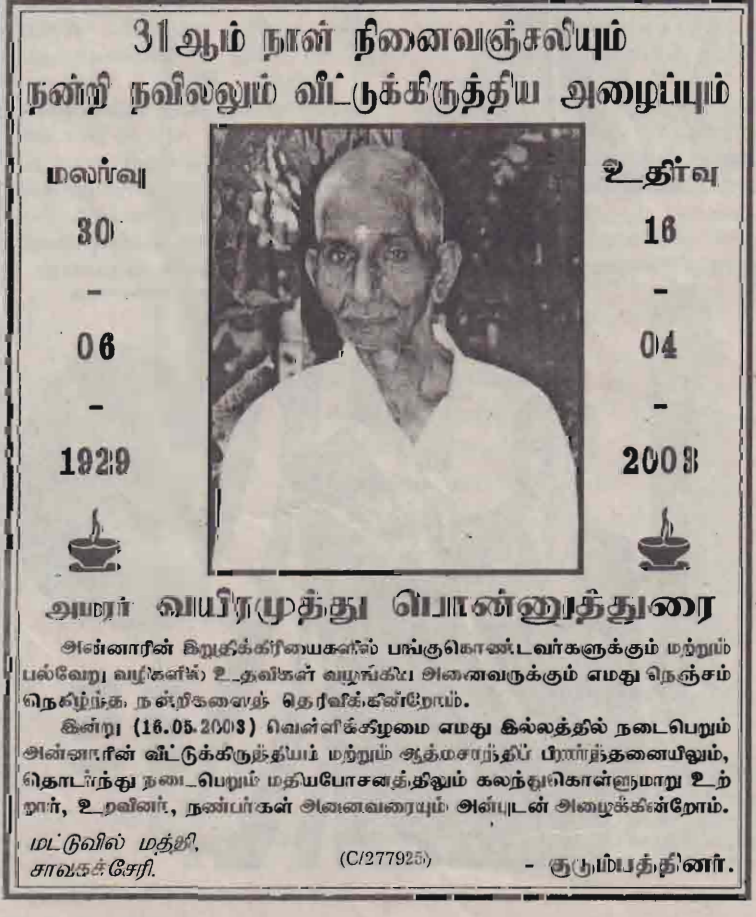 31ஆம் நாள் நினைவஞ்சலியும்
நன்றி நவிலலும் வீட்டுக்கிருத்திய அழைப்பும்
மலர்வு
30
-
06
-
1929
உதிர்வு
16
-
04
-
2003
அமரர் வயிரமுத்து பொன்னுத்துரை
அன்னாரின் இறுதிக்கிரியைகளில் பங்குகொண்டவர்களுக்கும் மற்றும்
பல்வேறு வழிகளில் உதவிகள் வழங்கிய அனைவருக்கும் எமது நெஞ்சம்
நெகிழ்ந்த நன்றிகளைத் தெரிவிக்கின்றோம்.
இன்று (16.05.2003) வெள்ளிக்கிழமை எமது இல்லத்தில் நடைபெறும்
அன்னாரின் வீட்டுக்கிருத்தியம் மற்றும் ஆத்மசாந்திப் பிரார்த்தனையிலும்,
தொடர்ந்து நடைபெறும் மதியபோசனத்திலும் கலந்துகொள்ளுமாறு உற்
றார், உறவினர், நண்பர்கள் அனைவரையும் அன்புடன் அழைக்கின்றோம்.
மட்டுவில் மத்தி,
சாவகச்சேரி.
(C/277925)
- குடும்பத்தினர்.